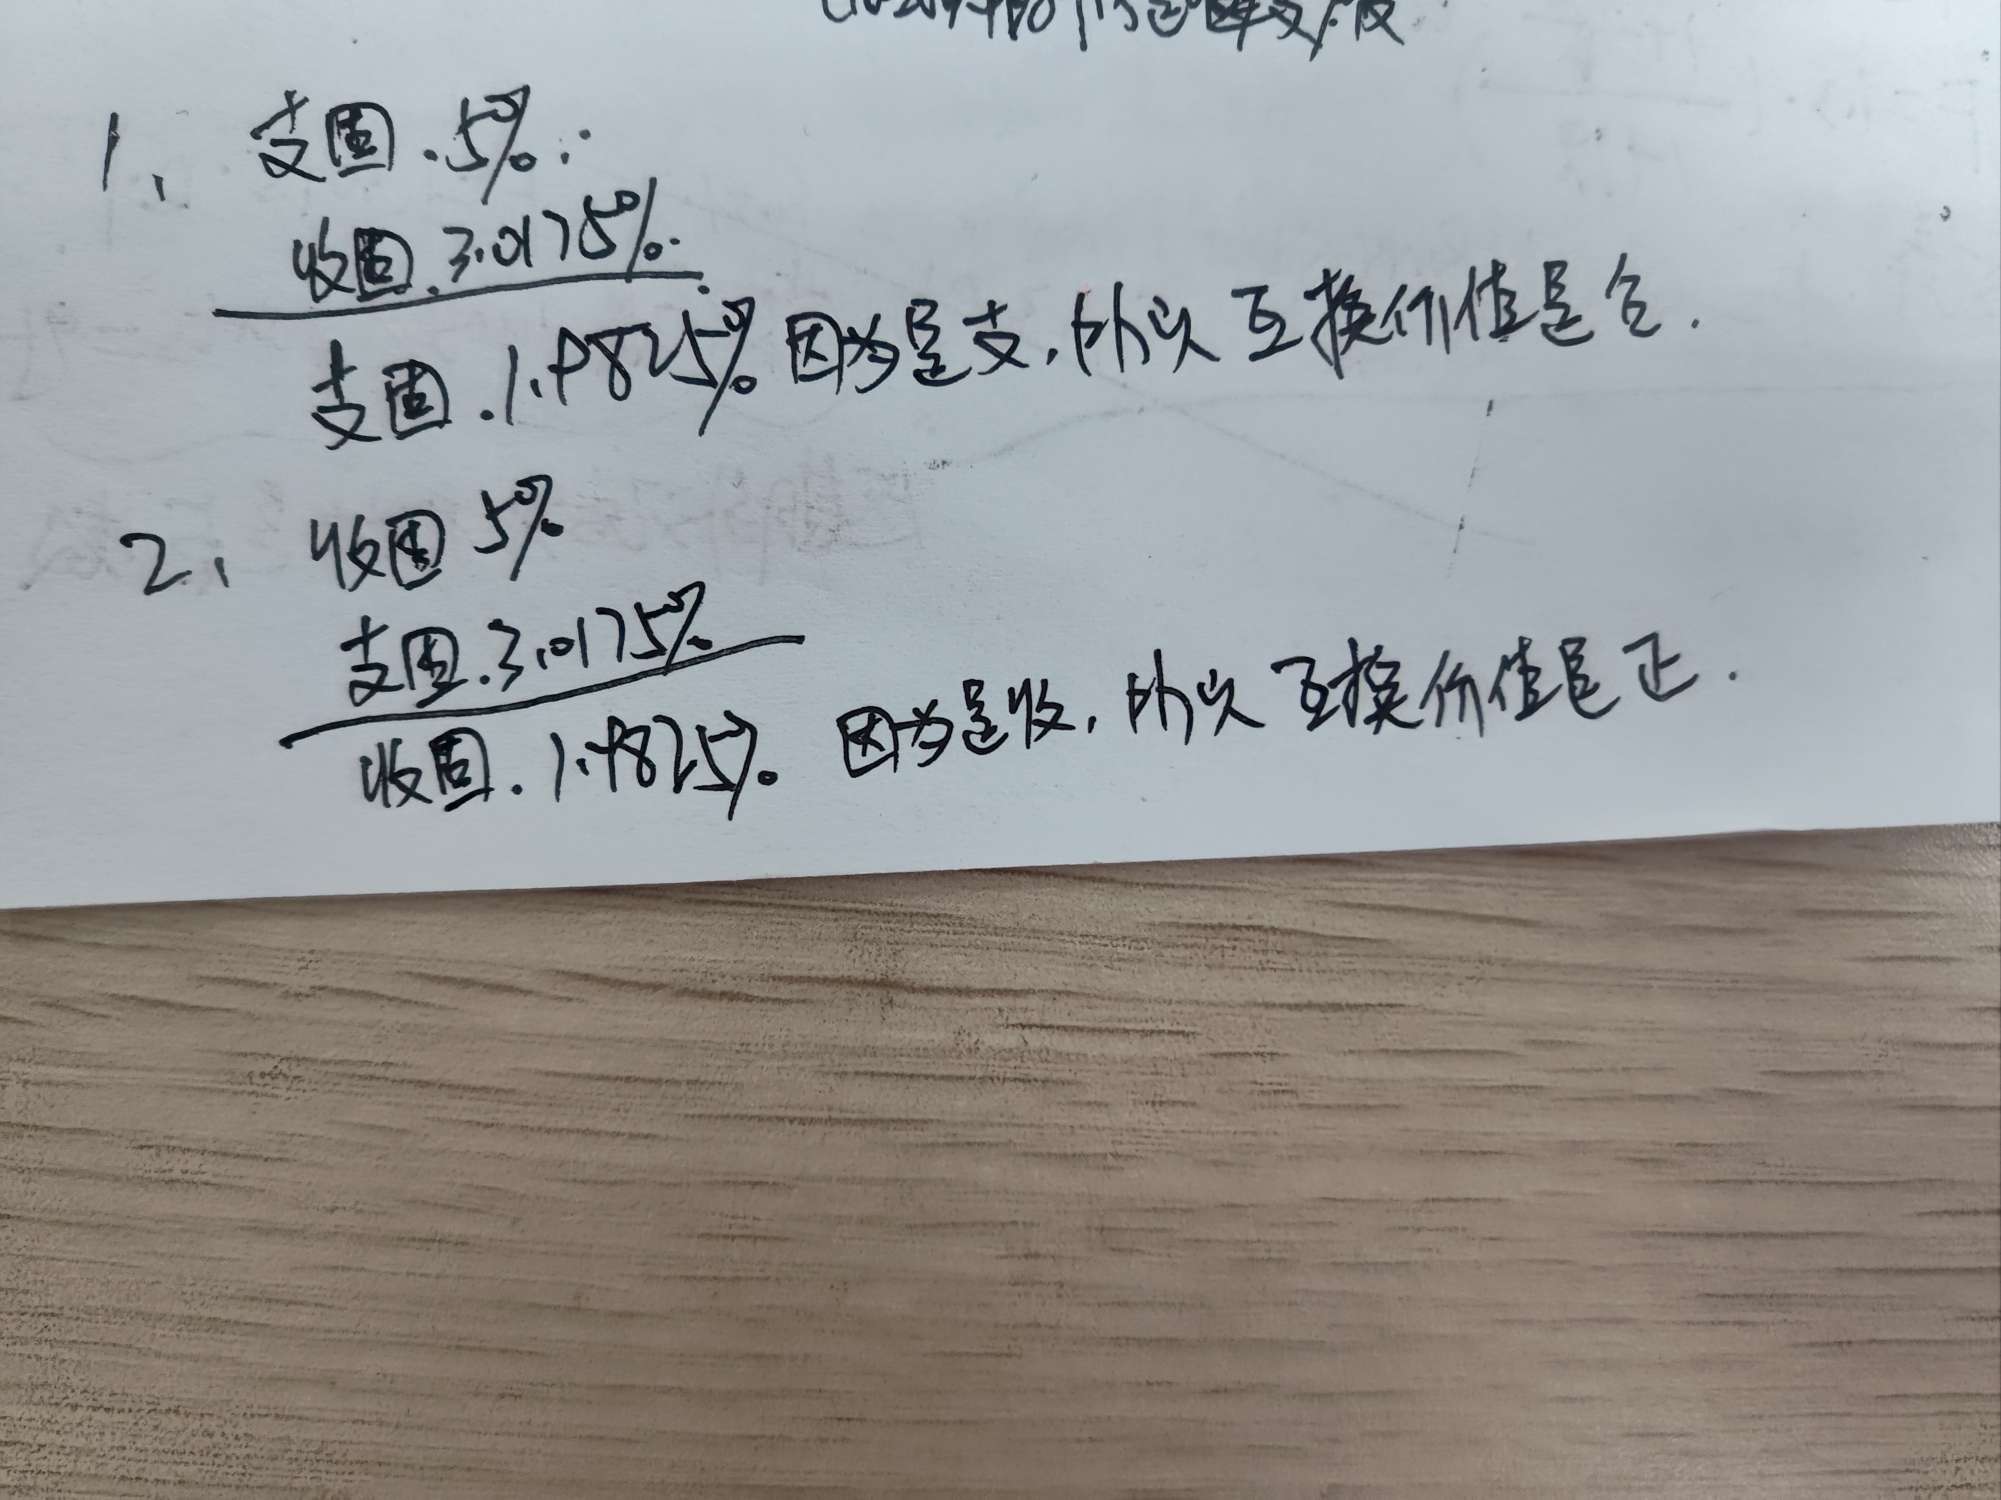 1、 支固.5%.
收固.3.0175%.
支固.1.9825% 因为是支,所以互换价值是负.
2、 收固5%
支固.3.0175%
收固.1.9825%. 因为是收,所以互换价值是正.